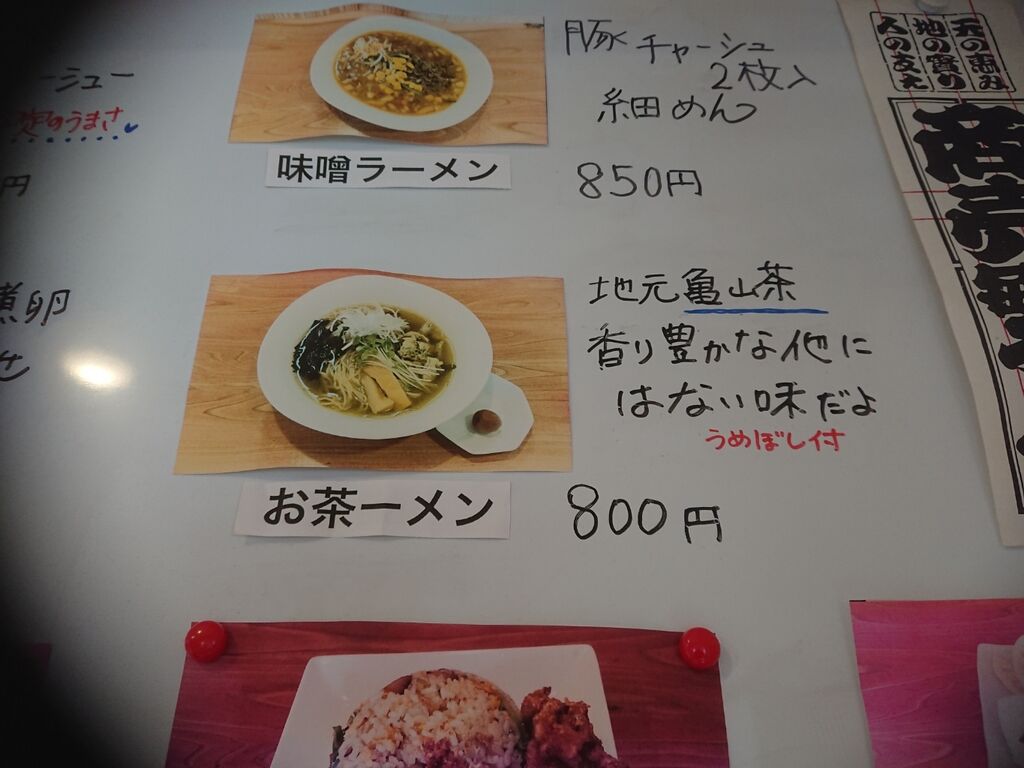 ーシュー
のうまさ
円
煮卵
豚チャーシュー
2枚入
細めん
味噌ラーメン
850円
地元亀山茶
香り豊かな他に
はない味だよ
うめぼし付
お茶ーメン
800円
天の恵み
地の実り
人の支え
商売繁